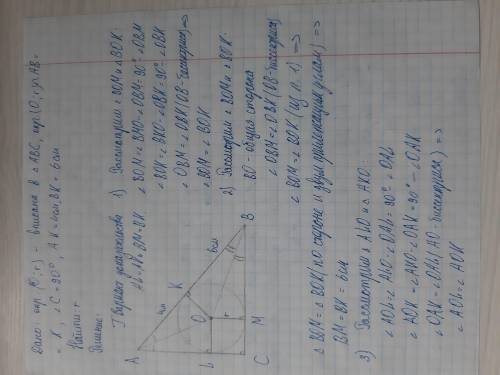 Дано: окр.(O; r) - вписана в △ABC, окр.(O; r) ∩ AB=
= K, ∠C=90°, AK=4см, BK=6см
Найти: r
Решение:
I вариант доказательства
AL=AK, BM=BK
A
4см
K
6см
B
O
r
L
C
M
1) Рассмотрим △BOM и △BOK:
∠BOM=∠BMO-∠OBM=90°-∠OBM
∠BOM=∠BKO-∠OBK=90°-∠OBK
∠OBM=∠OBK (OB-биссектриса) =>
∠BOM=∠BOK
2) Рассмотрим △BOM и △BOK:
BO-общая сторона
∠OBM=∠OBK (OB-биссектриса)
∠BOM=∠BOK (из п. 1) =>
△BOM=△BOK (по стороне и двум прилежащим углам) =>
BM=BK=6см
3) Рассмотрим △ALO и △AKO:
∠AOL=∠ALO-∠OAL=90°-∠OAL
∠AOK=∠AKO-∠OAK=90°-∠OAK
∠OAK=∠OAL (AO-биссектриса) =>
∠AOL=∠AOK